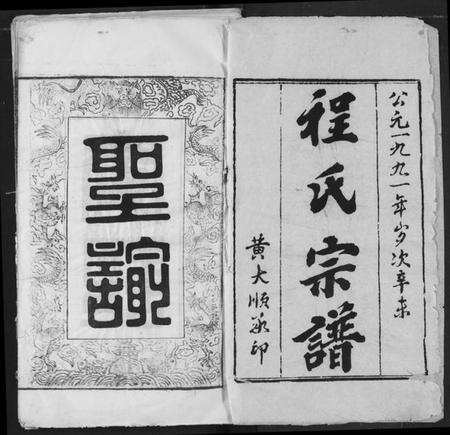 公元一九九一年岁次辛未
程氏宗譜
黄大順敬印
聖諭